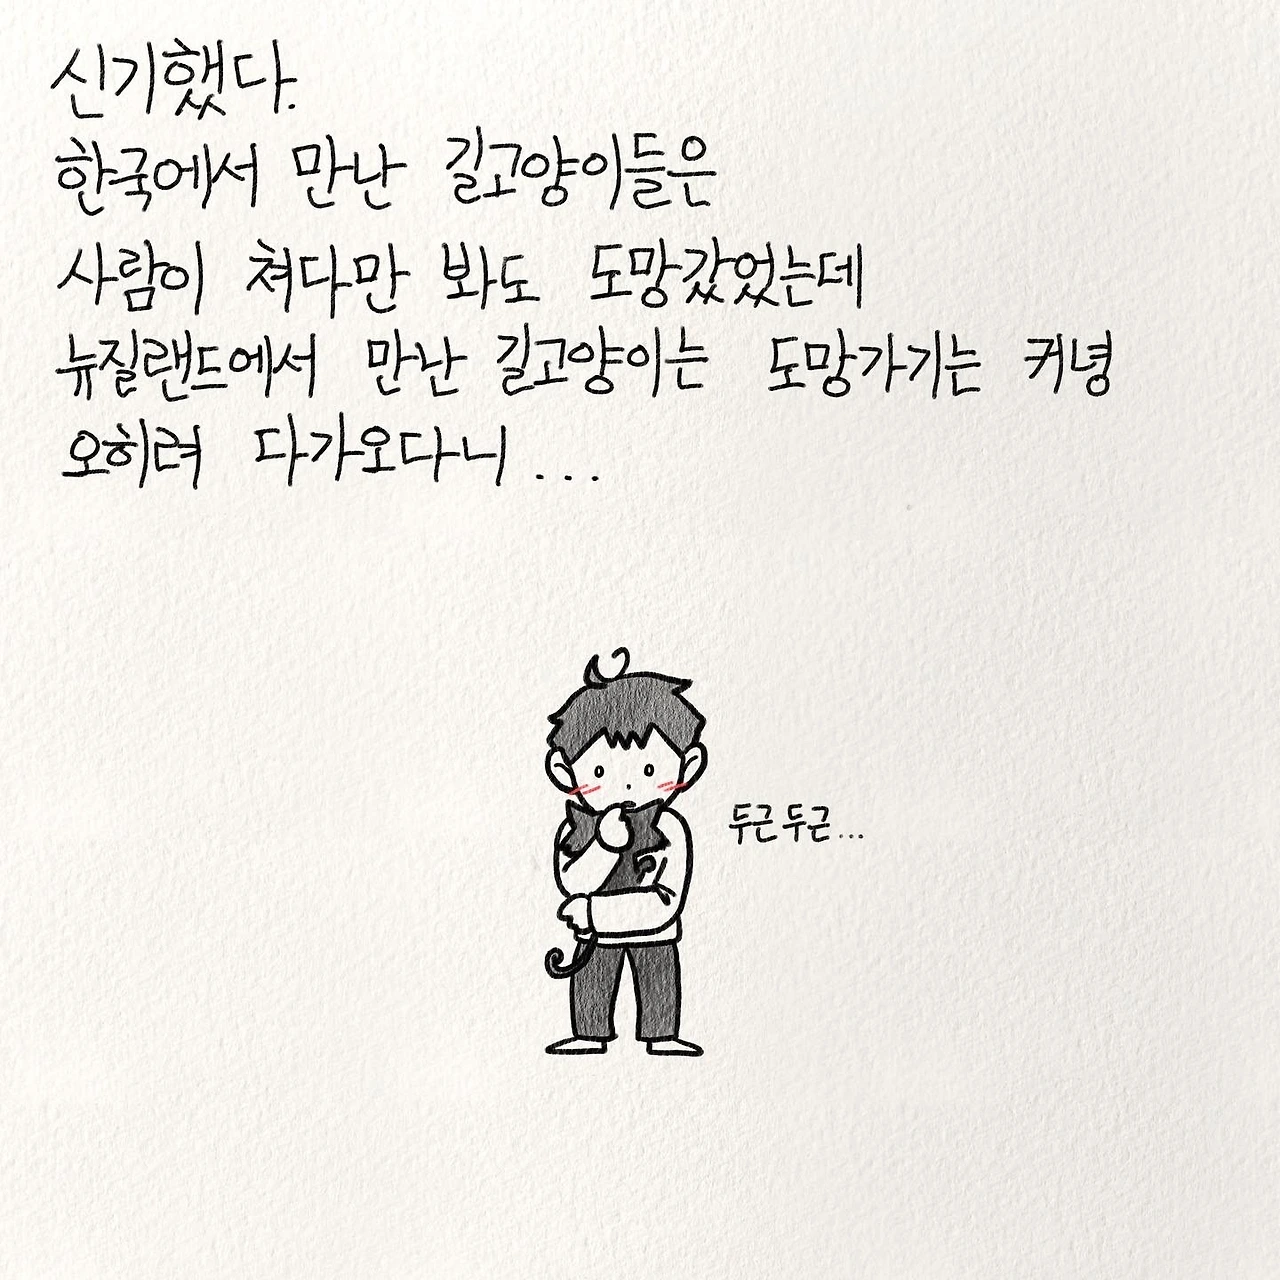 신기했다.
한국에서 만난 길고양이들은
사람이 쳐다만 봐도 도망갔었는데
뉴질랜드에서 만난 길고양이는 도망가기는 커녕
오히려 다가오다니...
두근두근...